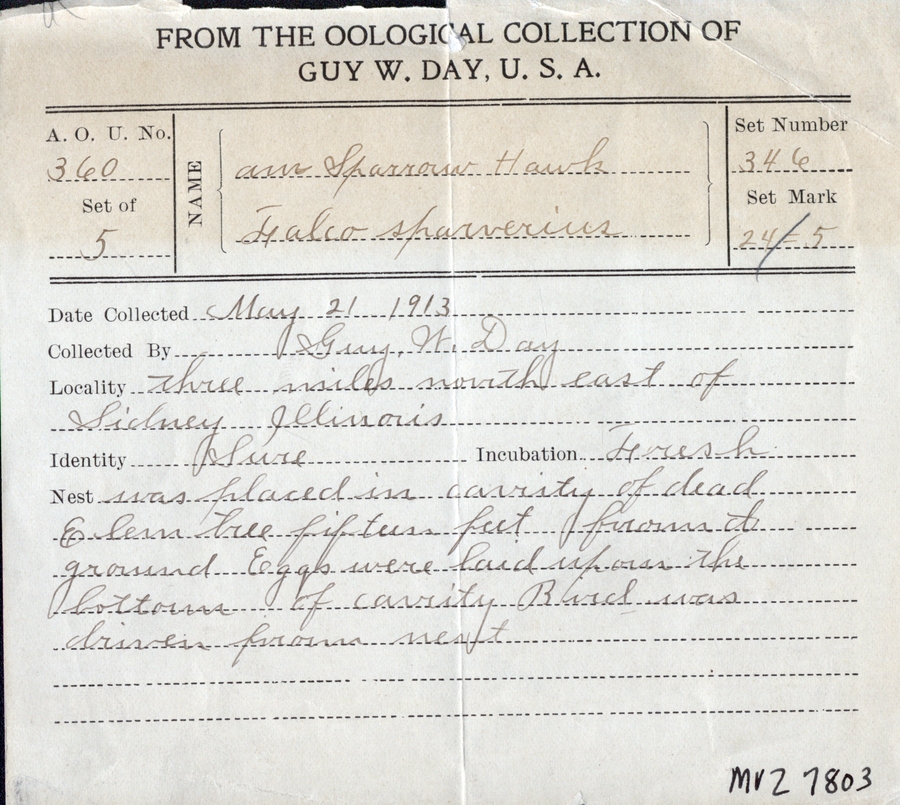 FROM THE OOLOGICAL COLLECTION OF
GUY W. DAY, U. S. A.
A. O. U. No.
360
Set of
5
NAME
am Sparrow Hawk
Falco sparverius
Set Number
346
Set Mark
24/5
Date Collected May 21 1913
Collected By Guy. W. Day
Locality three miles north east of
Sidney Illinois
Identity Sure Incubation Fresh
Nest was placed in cavity of dead
Elem tree fifteen feet from
ground Eggs were laid upon the
bottom of cavity Bird was
driven from nest
MVZ 7803